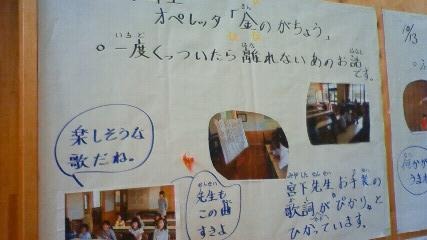 オペレッタ「金のがちょう」
一度くっついたら離れないあのお話
です。
楽しそうな
歌だね。
先生も
この曲
すきよ
宮下先生。お手製の
歌詞がぴかり。と
ひかっています。
10/13